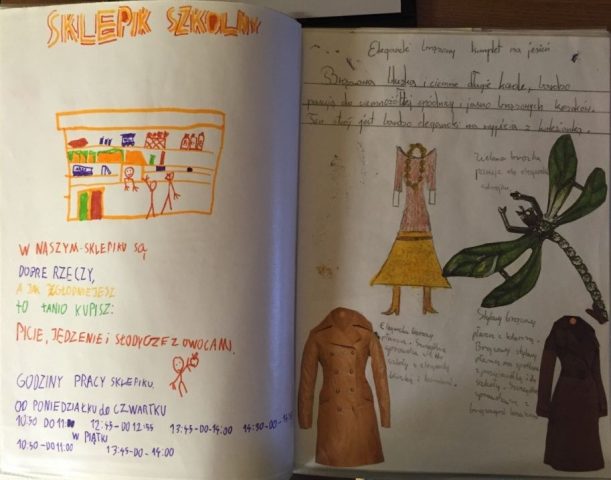 SKLEPIK SZKOLNY
W NASZYM SKLEPIKU SĄ
DOBRE RZECZY,
A JAK ZGŁODNIEJESZ
TO TANIO KUPISZ:
PICIE, JEDZENIE i SŁODYCZE Z OWOCAMI.
GODZINY PRACY SKLEPIKU.
OD PONIEDZIAŁKU do CZWARTKU
10:50 DO 11:00 12:45-DO-12:55 13:45-DO-14:00 14:50-DO-
W PIĄTKI
10:50-DO 11:00 13:45-DO-14:00
Elegancki brązowy komplet na jesień
Brązowa bluzka i ciemne długie korale, bardzo
pasują do ciemnożółtej spódnicy i jasno brązowych kozaków.
Ten strój jest bardzo elegancki na wyjścia z koleżanką.
Zielona broszka
pasuje do eleganckiego
Elegancki brązowy
płaszcz.
z elegancką
bluzką i
Stylowy brązowy
płaszcz z kołnierzem.
Brązowy stylowy
płaszcz na spotkanie
z przyjaciółką i do
szkoły.
z
brązowymi